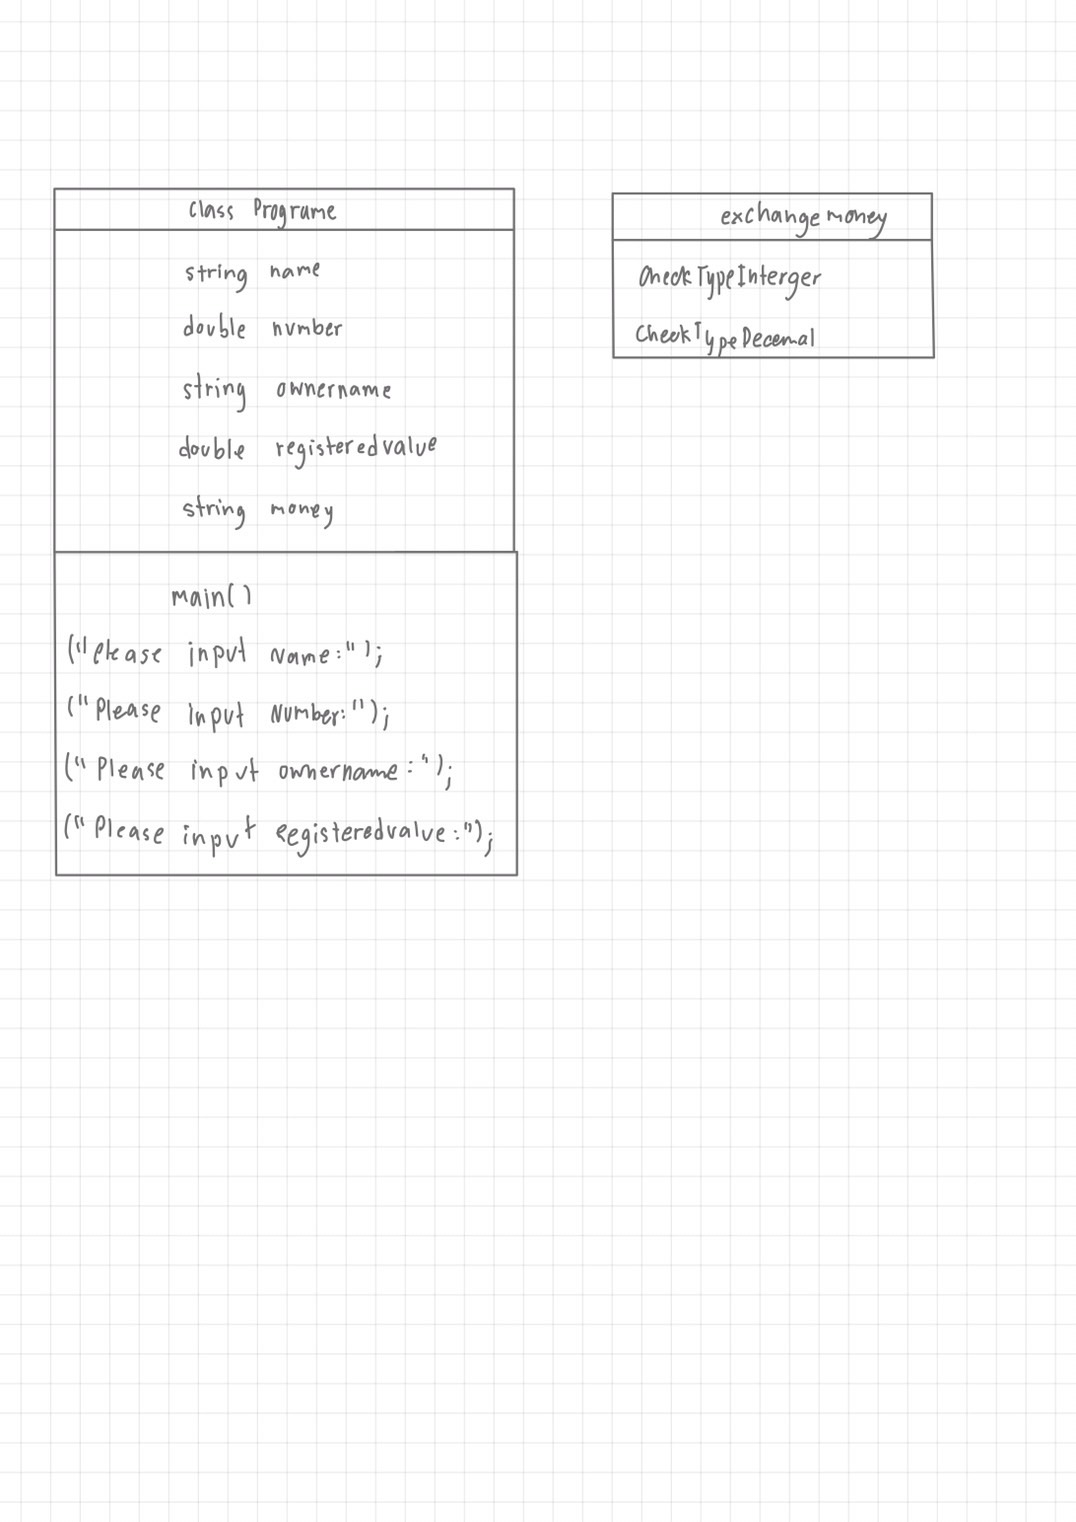 class Programe
string name
double number
string ownername
double registeredvalue
string money
main()
("Please input Name:");
("Please input Number:");
("Please input ownername:");
("Please input Registeredvalue:");
exchangemoney
CheckTypeInterger
CheckTypeDecemal